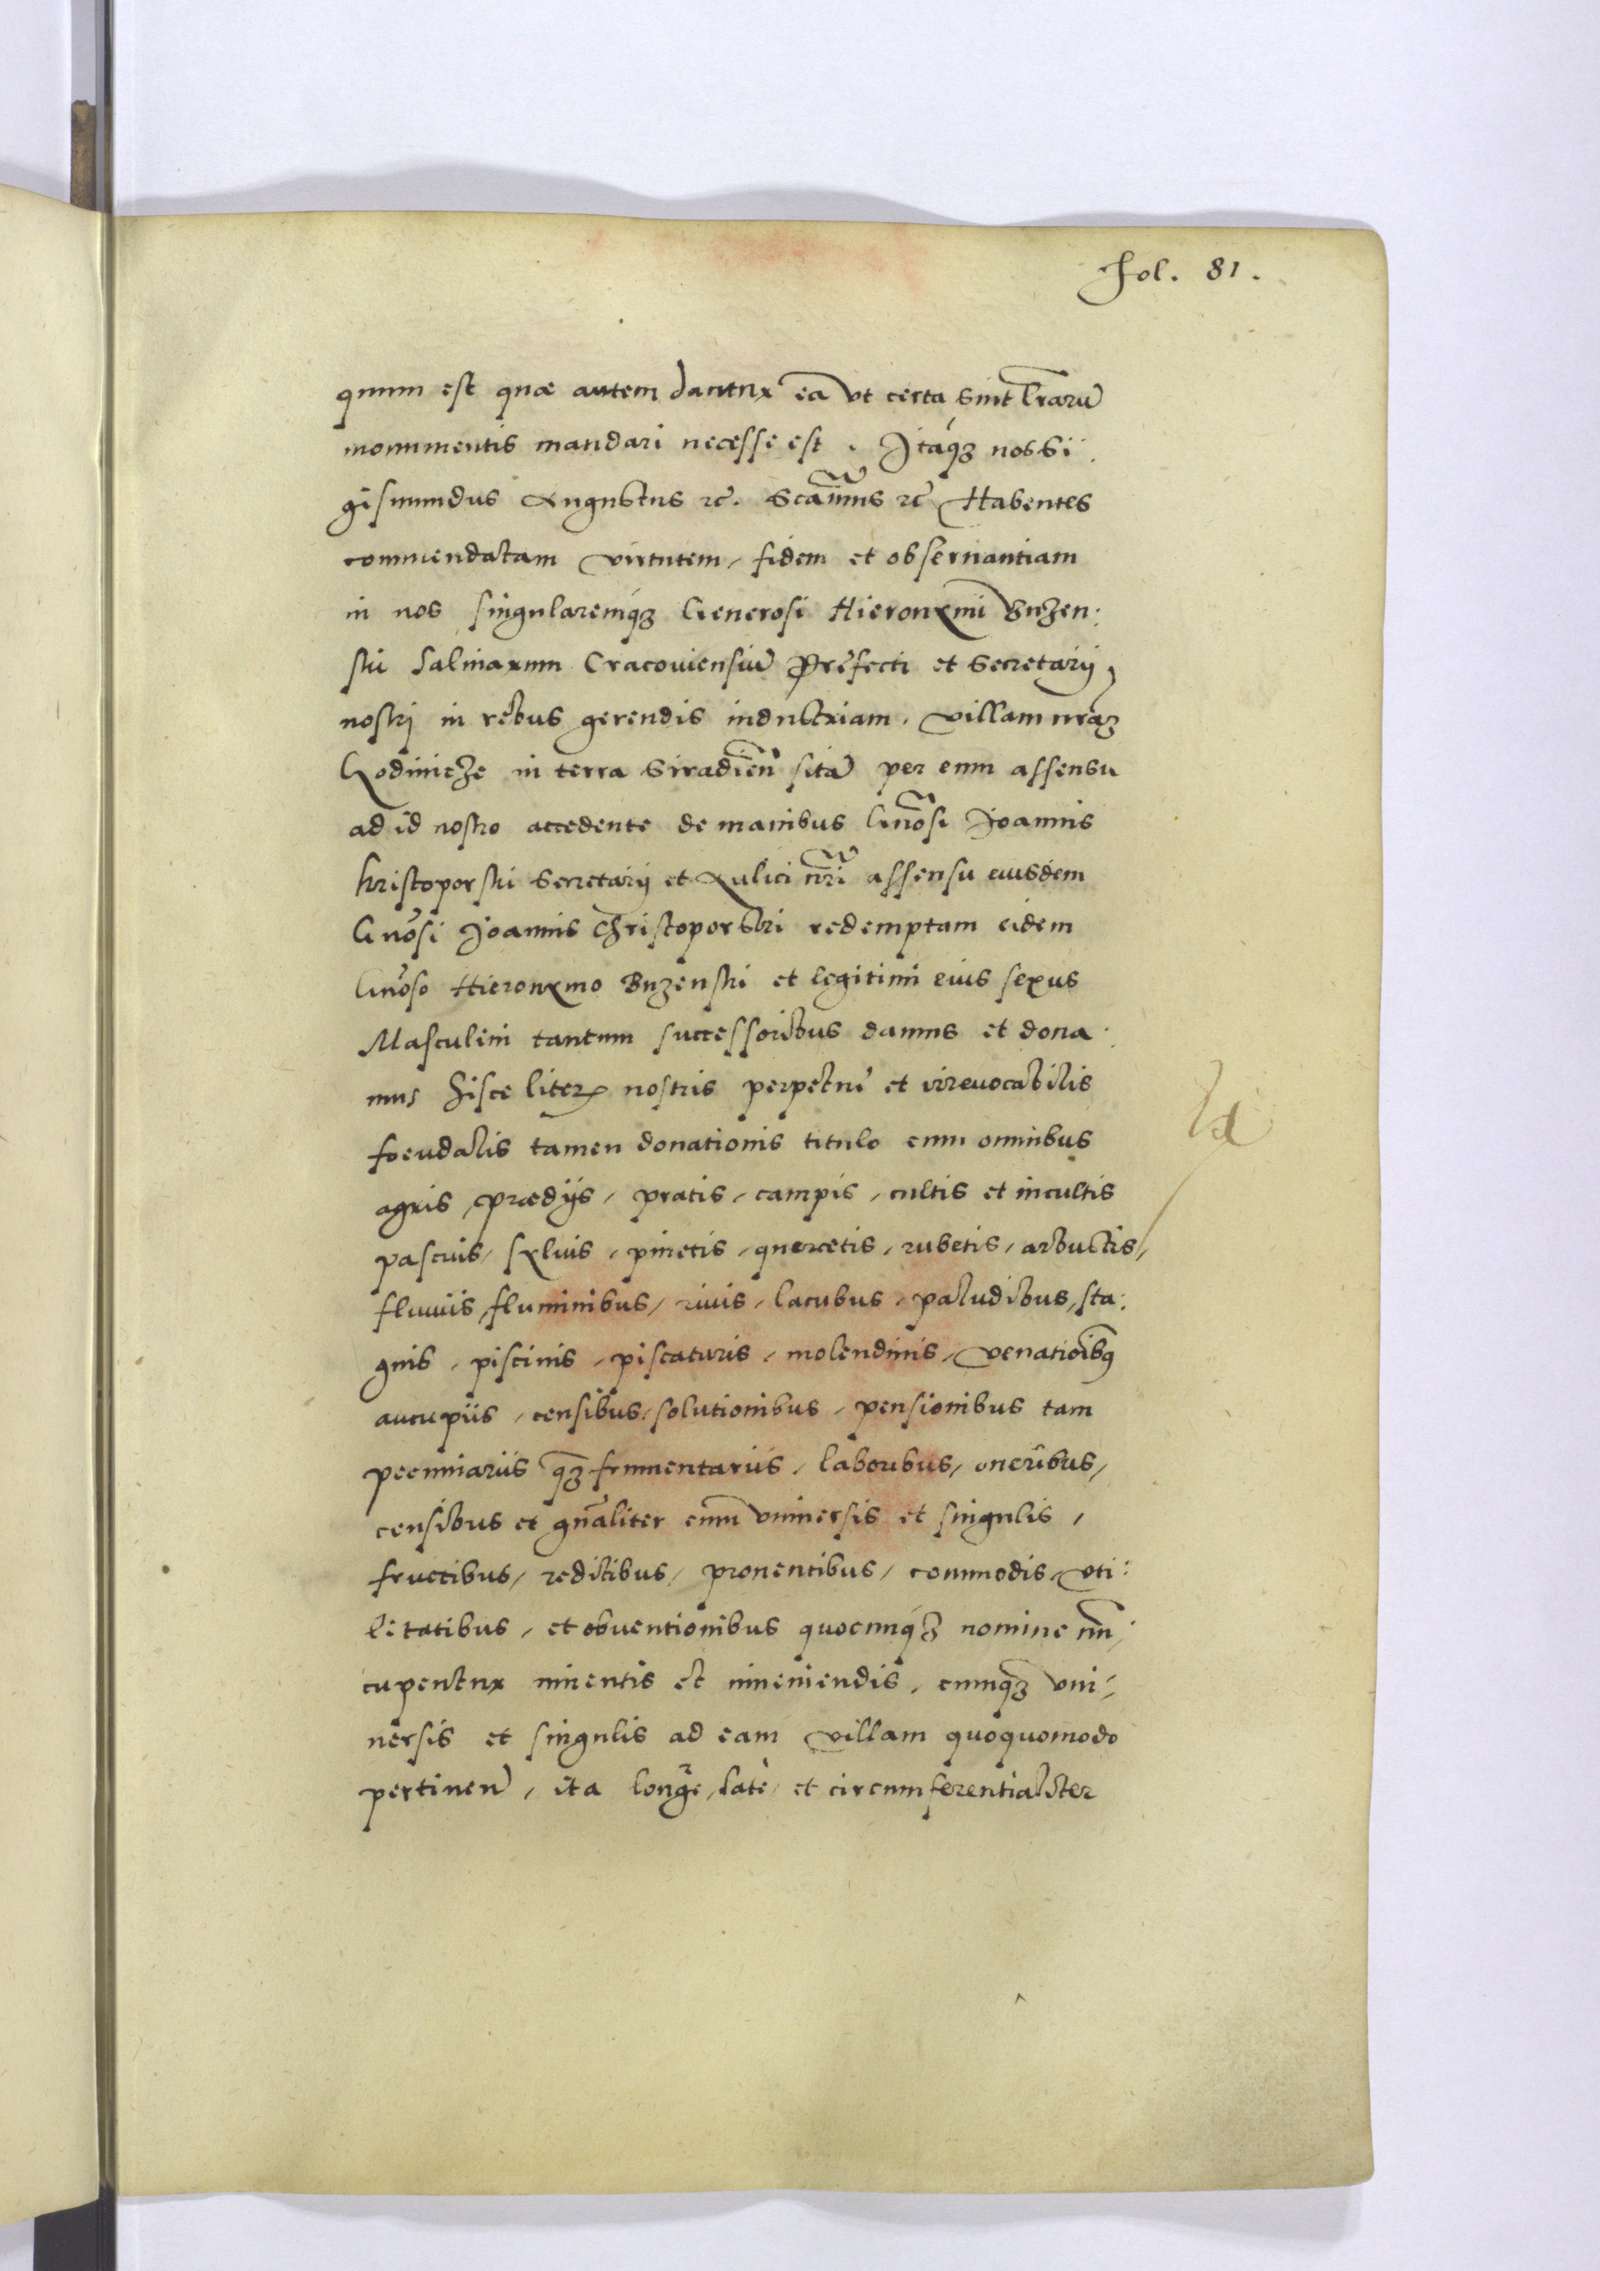 Fol. 81.
quum est quæ autem dantur ea ut certa sint lrarũ
monumentis mandari necesse est. Itaqꝫ nos Si
gismundus Augustus etc. Scimus etc Habentes
commendatam virtutem, fidem et obseruantiam
in nos singularemqꝫ Generosi Hieronymi Buzen:
ski Salinarum Cracouiensiũ Præfecti et Secretarij
nostri in rebus gerendis industriam, villam nrãꝫ
in terra Siradieñ sitã per eum assensu
ad id nostro accedente de manibus Gnõsi Joannis
kristoporski Secretarij et Aulici nrĩ assensu eiusdem
Gnõsi Joannis Christoporski redemptam eidem
Gnõso Hieronymo Buzenski et legitimi eius sexus
Masculini tantum successoribus damus et dona:
mus hisce literis nostris perpetui et irreuocabilis
foeudalis tamen donationis titulo cum omnibus
agris, prædijs, pratis, campis, cultis et incultis
pascuis, syluis, pinetis, quercetis, rubetis, arbustis,
fluuiis, fluminibus, riuis, lacubus, paludibus, sta:
gnis, piscinis, piscaturis, molendinis, venationibꝰ
aucupiis, censibus, solutionibus, pensionibus tam
pecuniariis qꝫ frumentariis, laboribus, oneribus,
censibus et gnãliter cum vniuersis et singulis,
fructibus, reditibus, prouentibus, commodis, vti:
litatibus, et obuentionibus quocunqꝫ nomine nun:
cupentur inuentis et inueniendis, cumqꝫ vni:
uersis et singulis ad eam villam quoquomodo
pertineñ, ita longe, late, et circumferentialiter